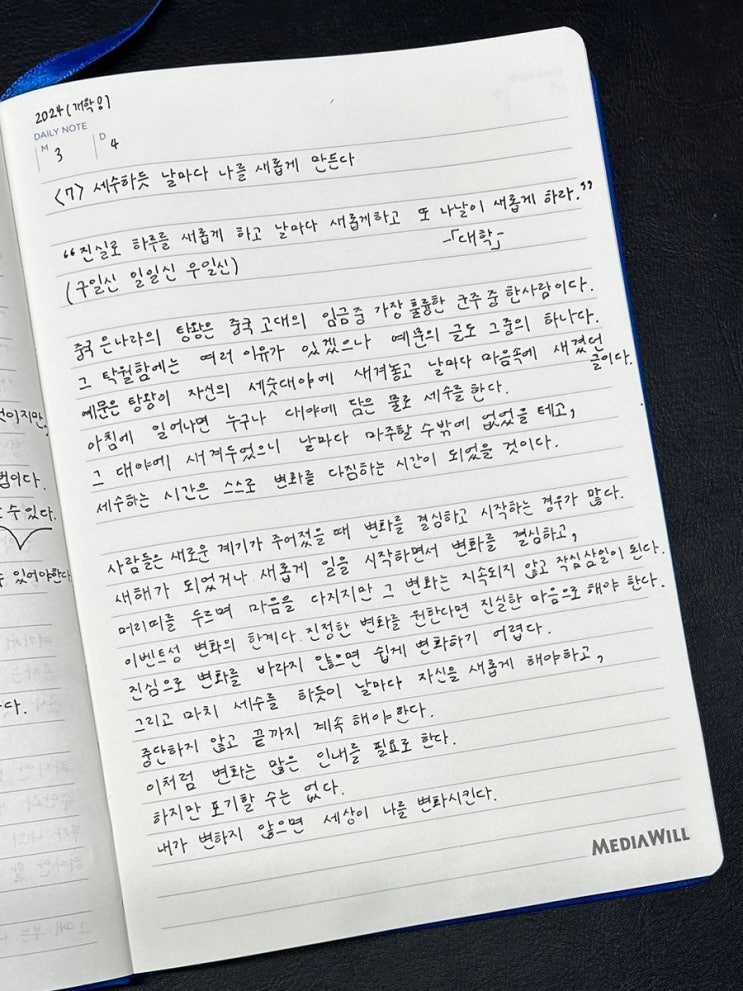 2024 (개학일)
DAILY NOTE
M 3 D 4
<7> 세수하듯 날마다 나를 새롭게 만든다
"진실로 하루를 새롭게 하고 날마다 새롭게하고 또 나날이 새롭게 하라."
-「대학」-
(구일신 일일신 우일신)
중국 은나라의 탕왕은 중국 고대의 임금중 가장 훌륭한 군주 중 한사람이다.
그 탁월함에는 여러 이유가 있겠으나 예문의 글도 그중의 하나다.
예문은 탕왕이 자신의 세숫대야에 새겨놓고 날마다 마음속에 새겼던
글이다.
아침에 일어나면 누구나 대야에 담은 물로 세수를 한다.
그 대야에 새겨두었으니 날마다 마주할 수밖에 없었을 테고,
세수하는 시간은 스스로 변화를 다짐하는 시간이 되었을 것이다.
사람들은 새로운 계기가 주어졌을 때 변화를 결심하고 시작하는 경우가 많다.
새해가 되었거나 새롭게 일을 시작하면서 변화를 결심하고,
머리띠를 두르며 마음을 다지지만 그 변화는 지속되지 않고 작심삼일이 된다.
이벤트성 변화의 한계다. 진정한 변화를 원한다면 진실한 마음으로 해야 한다.
진심으로 변화를 바라지 않으면 쉽게 변화하기 어렵다.
그리고 마치 세수를 하듯이 날마다 자신을 새롭게 해야하고,
중단하지 않고 끝까지 계속 해야한다.
이처럼 변화는 많은 인내를 필요로 한다.
하지만 포기할 수는 없다.
내가 변하지 않으면 세상이 나를 변화시킨다.
MEDIAWILL
이지만,
법이다.
수 있다.
있어야한다
다.